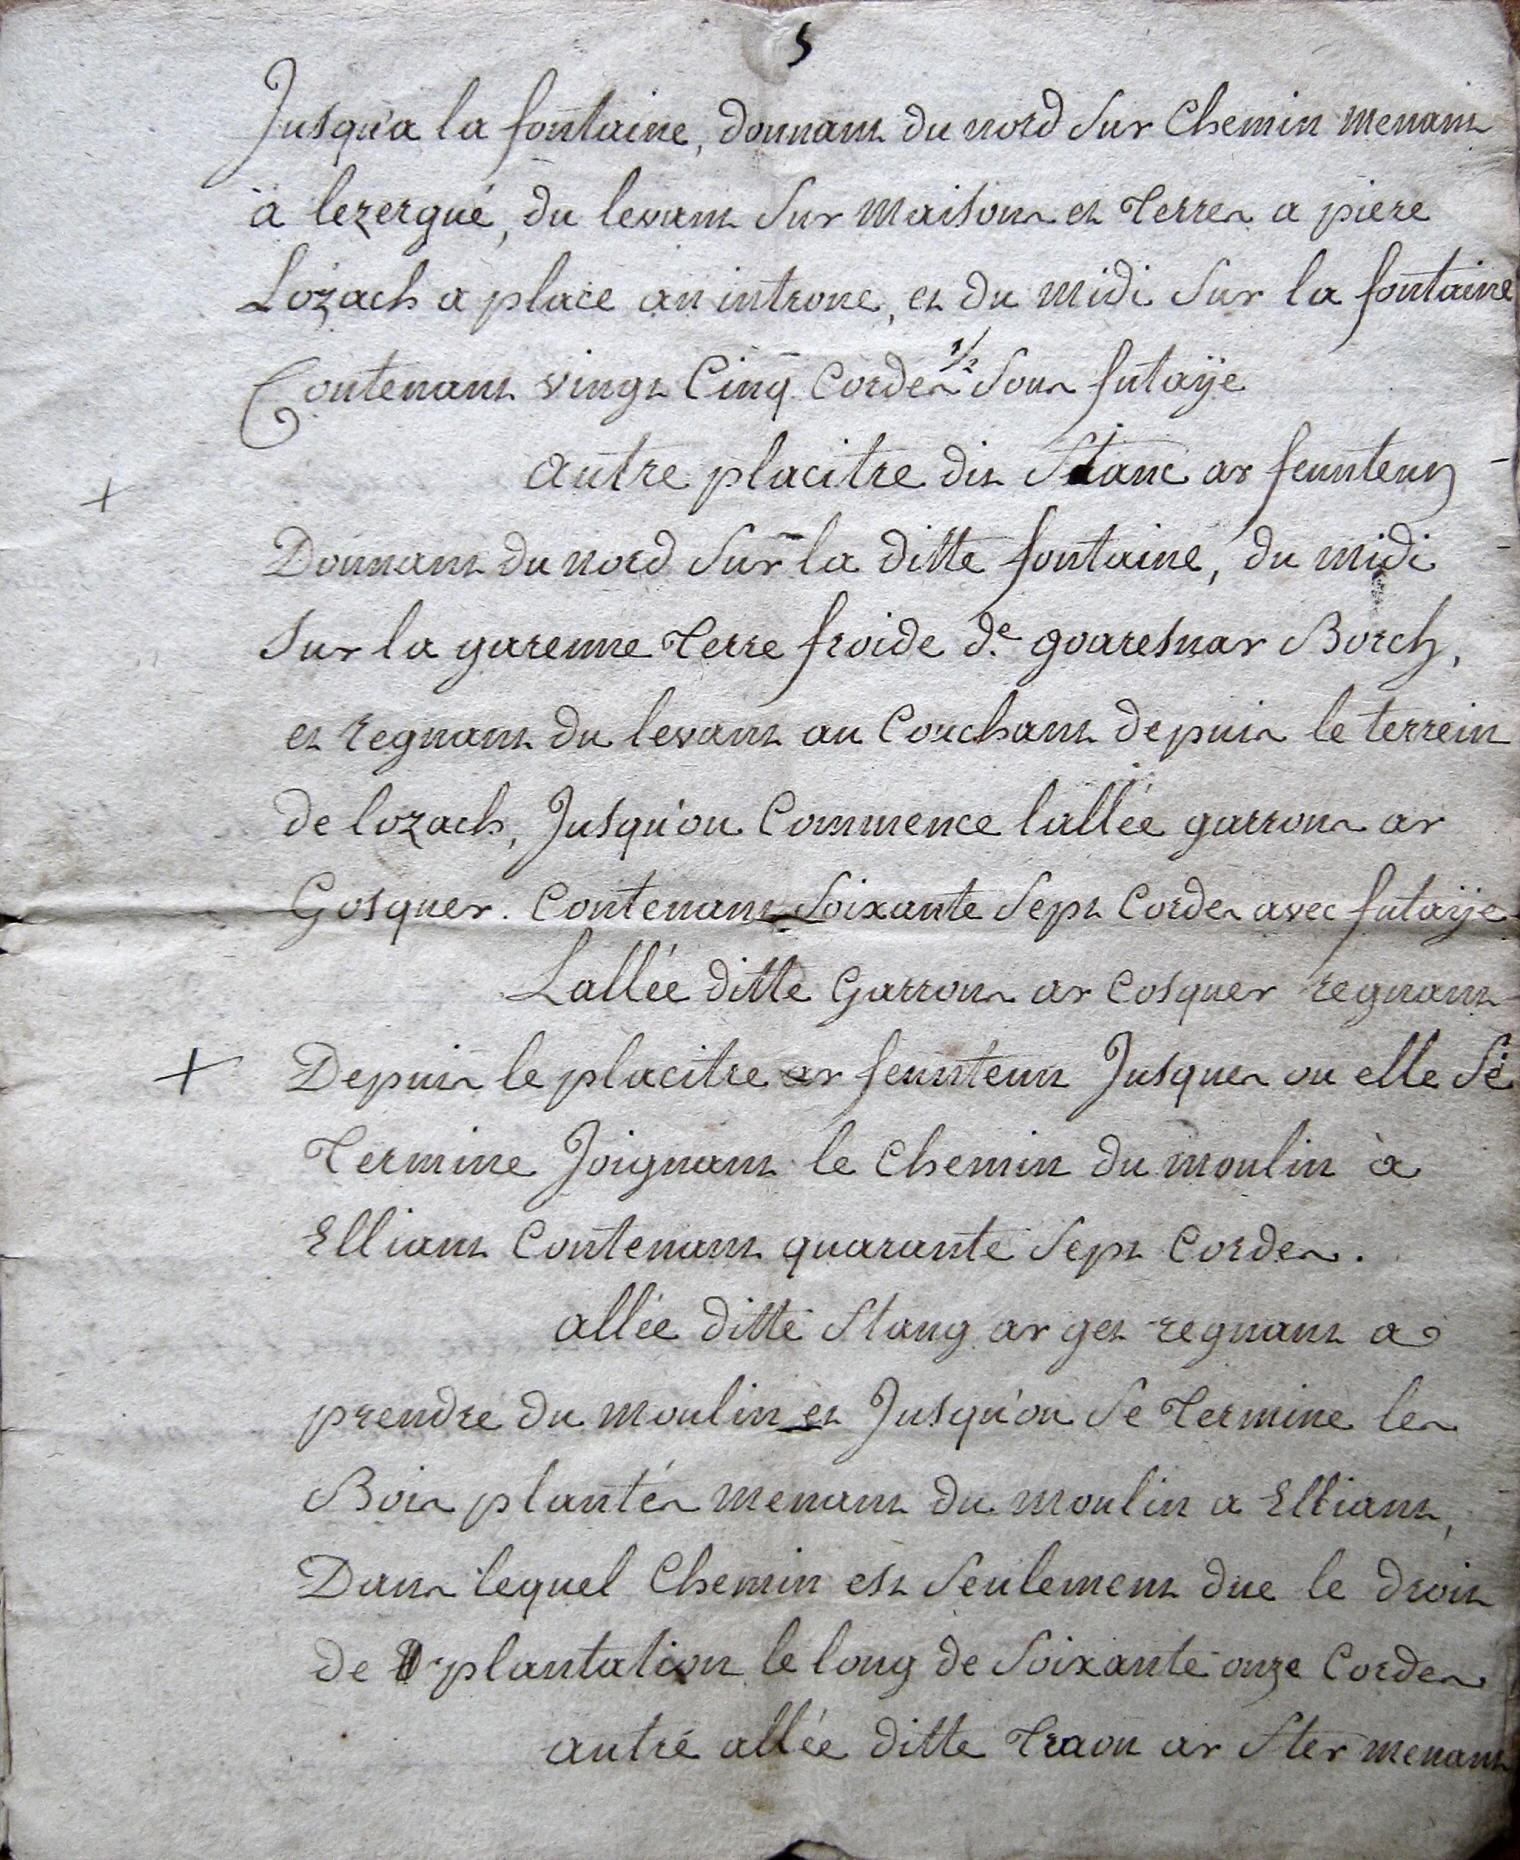 5
Jusqu'a la fontaine, donnant du nord sur Chemin menant
à lezergué, du levant sur maisons et Terres a piere
Lozach a place an introne, et du midi sur la fontaine
Contenant vingt Cinq Cordes 1/2 sous futaÿe
autre placitre dit Stanc ar feunteun
+
Donnant du nord sur la ditte fontaine, du midi
sur la garenne Terre froide d.e goaresnar Borch,
et regnant du levant au Couchant depuis le terrein
de lozach, Jusqu'ou Commence lallée garront ar
Gosquer. Contenant soixante sept Cordes avec futaÿe
Lallée ditte Garront ar Cosquer regnant
+ Depuis le placitre ar feunteun Jusques ou elle se
Termine Joignant le Chemin du moulin à
Elliant Contenant quarante sept Cordes.
allée ditte Stang ar get regnant a
prendre du moulin et Jusqu'ou se Termine les
Bois plantés menant du moulin a Elliant,
Dans lequel Chemin est seulement due le droit
de plantation le long de soixante onze Cordes
autre allée ditte Traon ar Ster menant